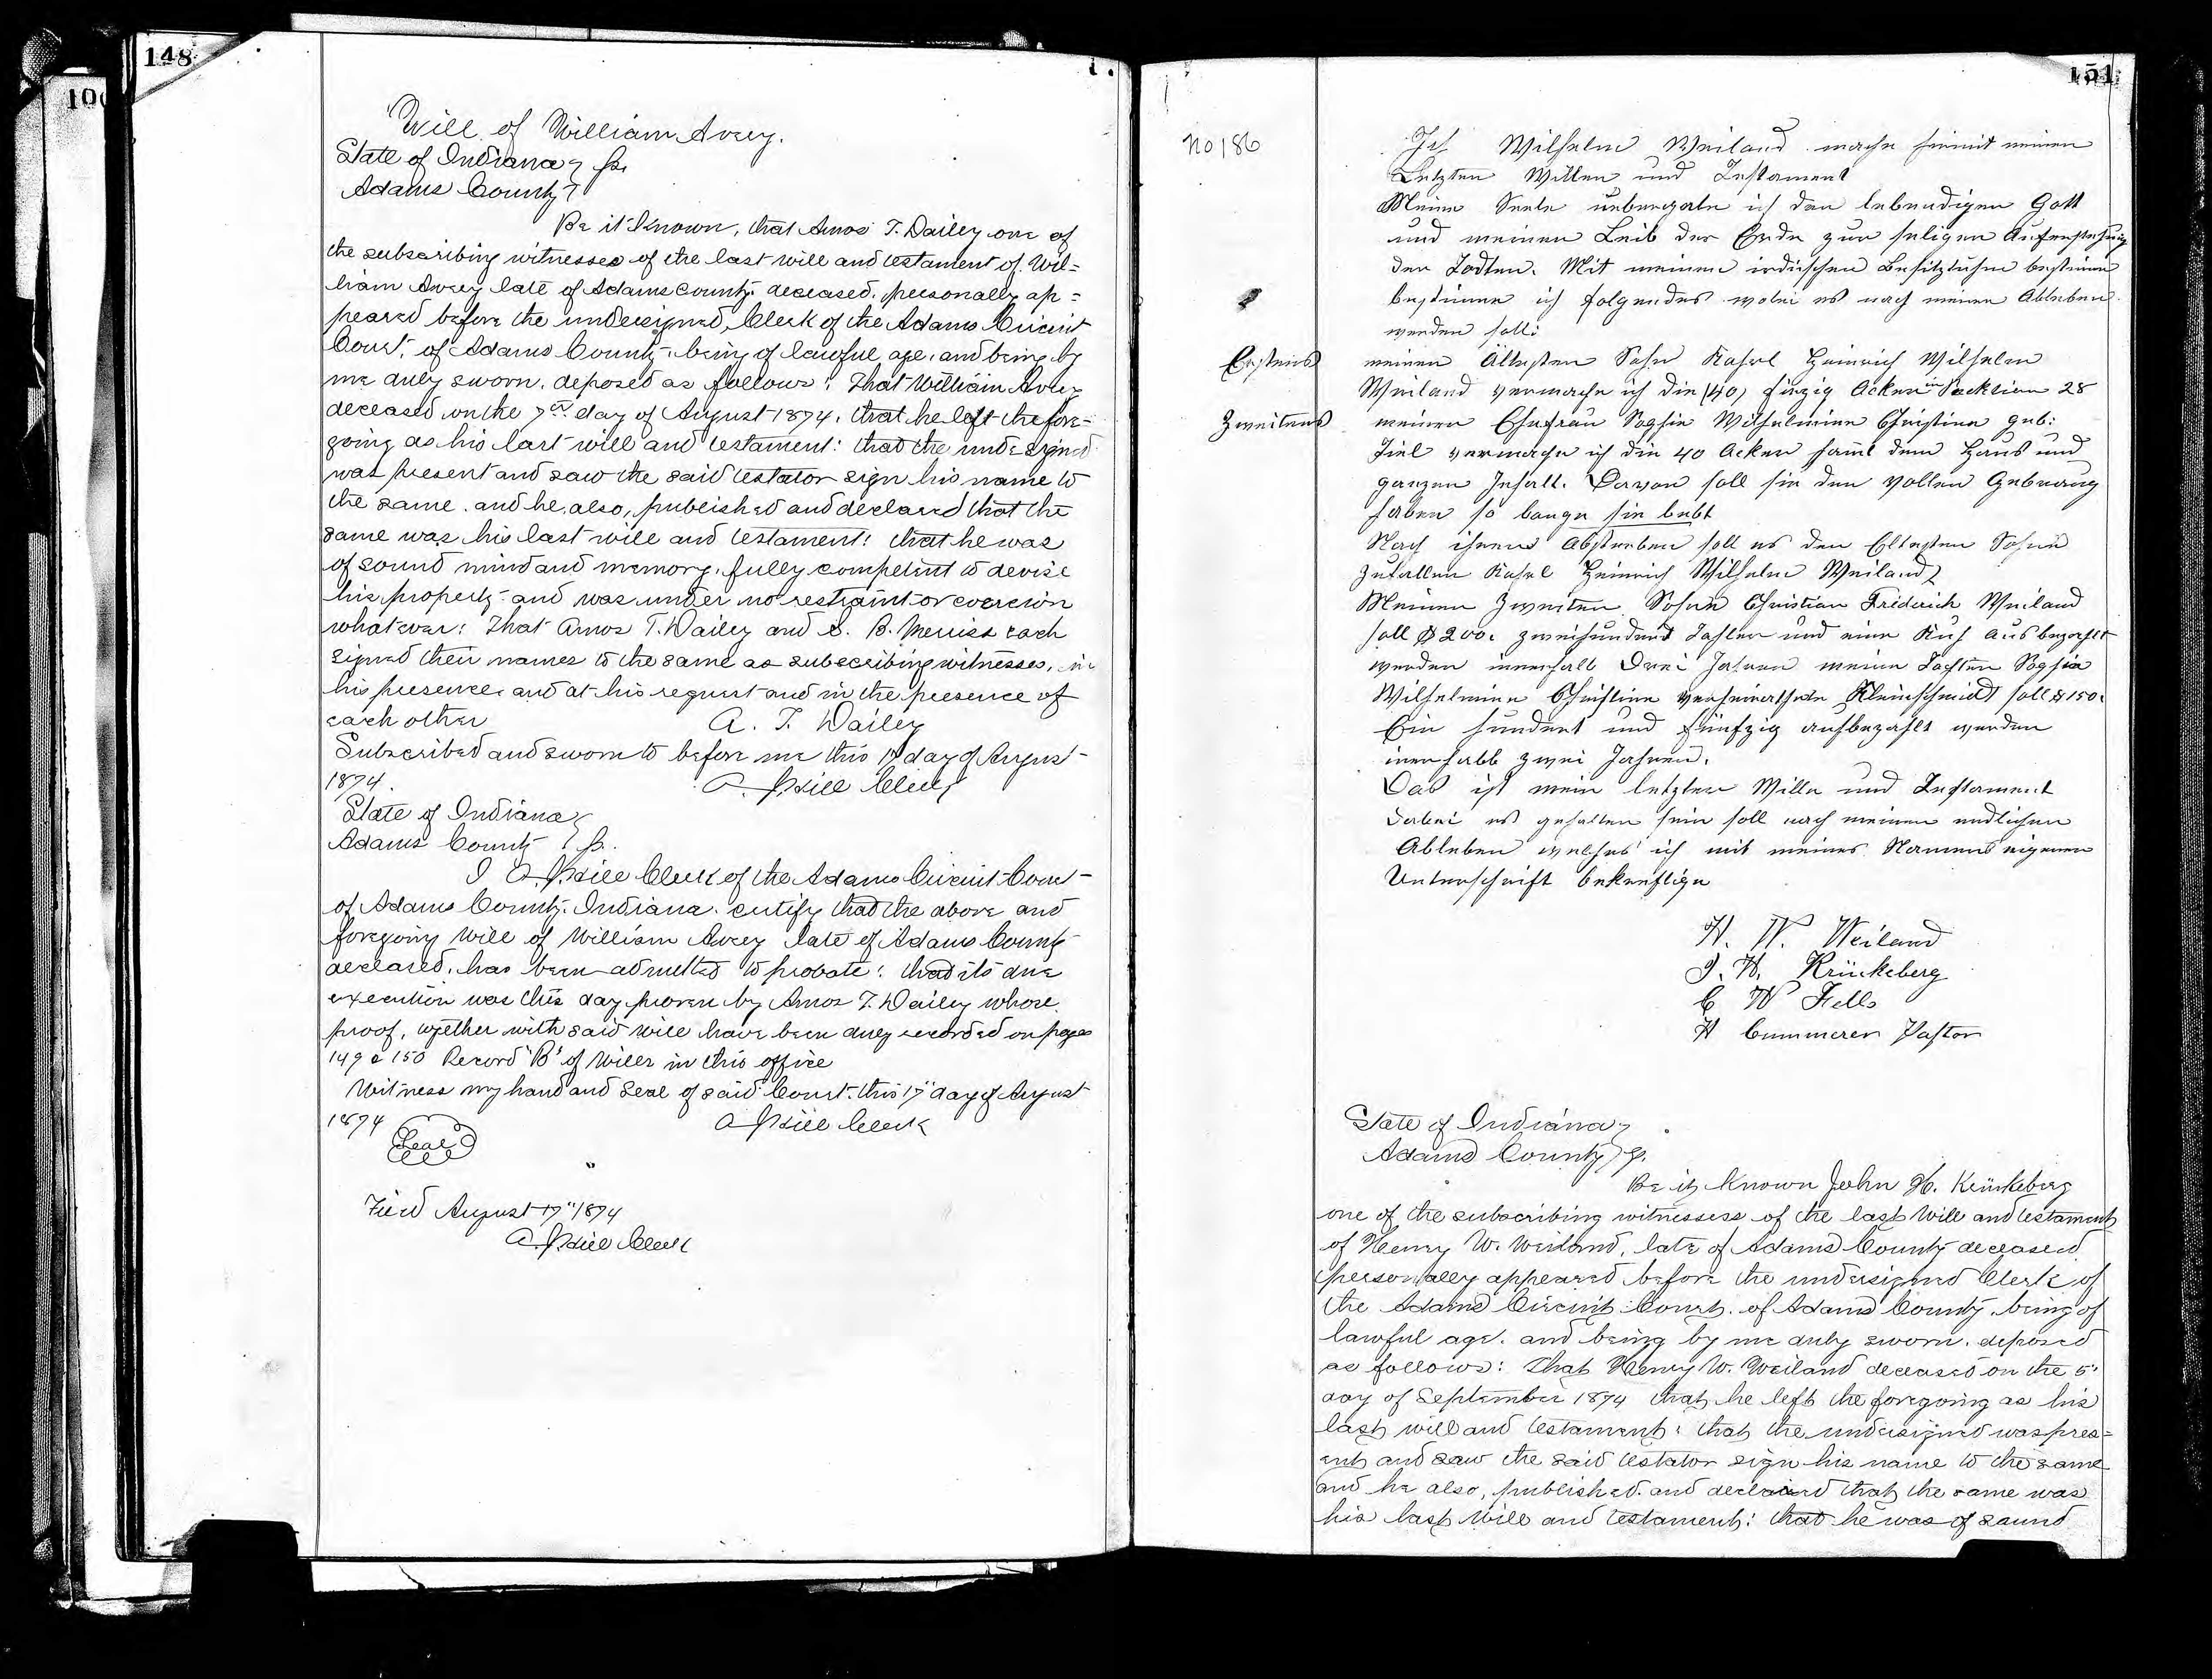 148
106
Will of William Avery.
State of Indiana } ss.
Adams County }
Be it known, that Amos T. Dailey one of
the subscribing witnesses of the last will and testament of Wil=
liam Avery late of Adams County deceased, personally ap=
peared before the undersigned, Clerk of the Adams Circuit
Court, of Adams County, being of lawful age, and being by
me duly sworn, deposed as follows: That William Avery
deceased on the 7th day of August 1874, that he left the fore=
going as his last will and testament: that the undersigned
was present and saw the said testator sign his name to
the same. and he, also, published and declared that the
same was his last will and testament: that he was
of sound mind and memory, fully competent to devise
his property and was under no restraint or coercion
whatever: That Amos T. Dailey and S. B. Merriss each
signed their names to the same as subscribing witnesses, in
his presence, and at his request and in the presence of
each other A. T. Dailey
Subscribed and sworn to before me this 17 day of August
1874. A. J. Hill Clerk
State of Indiana }
Adams County } ss.
I A. J. Hill Clerk of the Adams Circuit Court
of Adams County, Indiana. certify that the above and
foregoing Will of William Avery late of Adams County
deceased, has been admitted to probate: that its due
execution was this day proven by Amos T. Dailey whose
proof, together with said will have been duly recorded on pages
149 & 150 Record "B" of Wills in this office
Witness my hand and Seal of said Court this 17" day of August
1874 A. J. Hill Clerk
Seal
Filed August 17" 1874
A. J. Hill Clerk
151
No 186
Ich Wilhelm Weiland mache hiemit meinen
Letzten Willen und Testament
Meine Seele uebergebe ich den lebendigen Gott
und meinen Leib der Erde zur seligen Auferstehung
der Todten. Mit meinem irdischen Besitzthum bestimme
bestimme ich folgendes wobei es nach meinen Ableben
werden soll:
Erstens meinen Ältesten Sohn Kahrl Heinrich Wilhelm
Weiland vermache ich die (40) firzig Acker in Secktion 28
Zweitens meiner Ehefrau Sophie Wilhelmine Christine geb:
Tiel vermache ich die 40 Acker samt dem Haus und
ganzen Inhalt. Davon soll sie den vollen Gebraug
haben so lange sie lebt
Nach ihrem Absterben soll es den Elltesten Sohne
zufallen Kahrl Heinrich Wilhelm Weiland
Meinen Zweiten Sohne Christian Friderich Weiland
soll $200. zweihundert Tahler und eine Kuh ausbezahlt
werden innerhalb Drei Jahren meine Tochter Sophia
Wilhelmine Christine verheirathete Kleinschmidt soll $150.
Ein hundert und fünfzig ausbezahlt werden
inerhalb zwei Jahren.
Das ist mein letzter Wille und Testament
dabei es gehalten sein soll nach meinen endlichen
Ableben welches ich mit meines Namens eigenen
Unterschrift bekreftige
H. W. Weiland
J. H. Krückeberg
C W Fells
H Cummerer Pastor
State of Indiana }
Adams County } ss.
Be it known John H. Krückeberg
one of the subscribing witnessess of the last Will and testament
of Henry W. Weiland, late of Adams County deceased
personally appeared before the undersigned Clerk of
the Adams Circuit Court, of Adams County, being of
lawful age. and being by me duly sworn. deposed
as follows: That Henry W. Weiland deceased on the 5"
day of September 1874 that he left the foregoing as his
last will and testament: that the undersigned was pres=
ent and saw the said testator sign his name to the same
and he also, published. and declared that the same was
his last Will and testament: that he was of saund